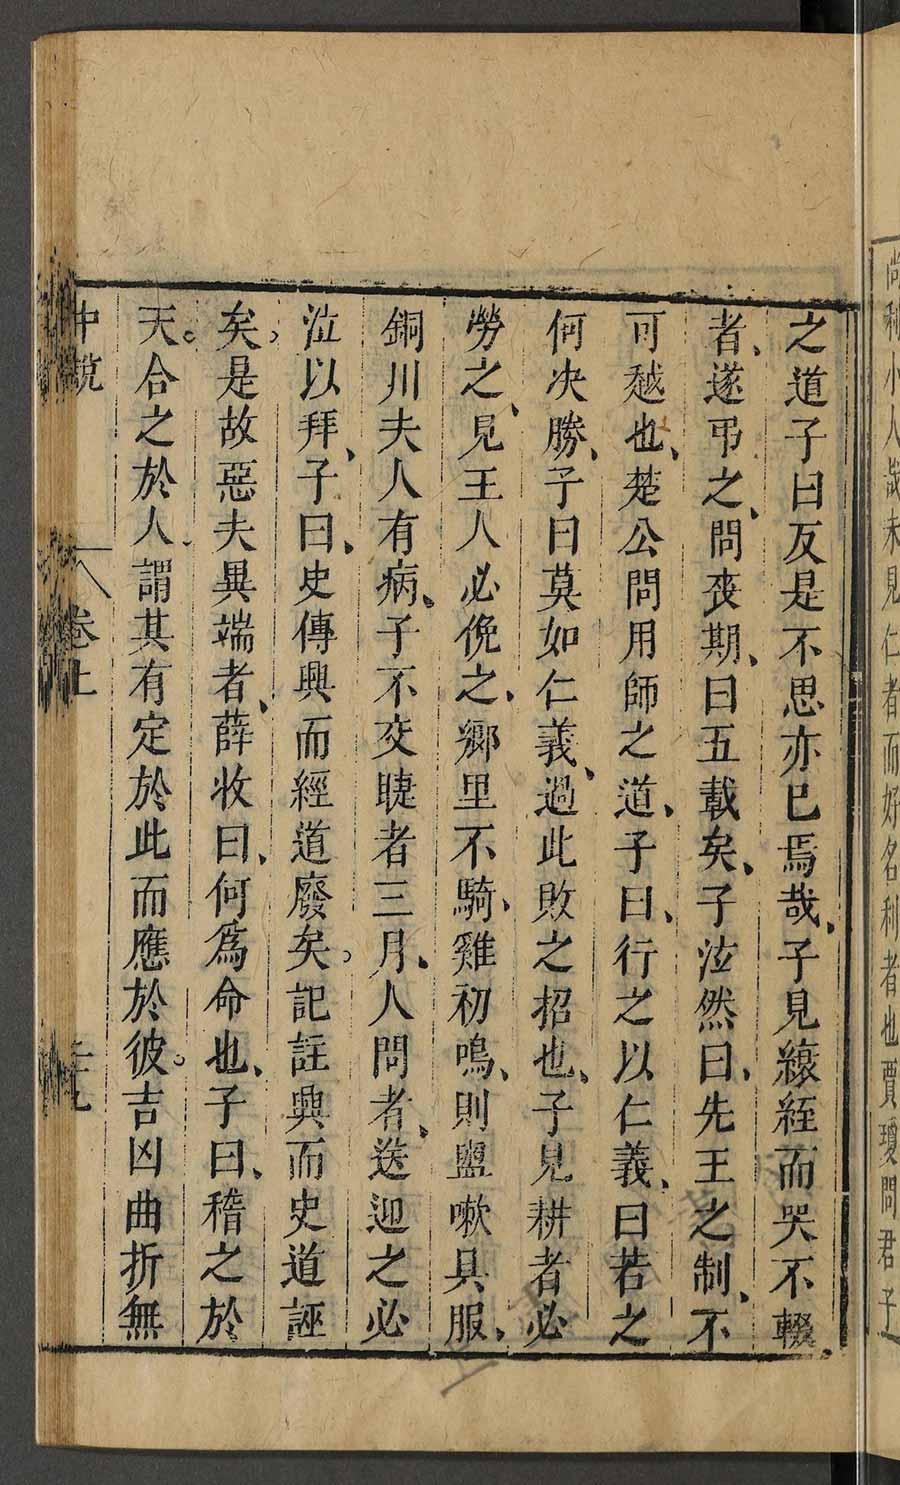 尚利小人哉未見仁者而好名利者也賈瓊問君子
之道子曰反是不思亦已焉哉、子見縗絰而哭不輟、
者、遂弔之、問喪期、曰五載矣、子泫然曰、先王之制、不
可越也、楚公問用師之道、子曰、行之以仁義、曰若之
何决勝、子曰莫如仁義、過此敗之招也、子見耕者必
勞之、見王人必俛之、鄉里不騎、雞初鳴、則盥嗽具服、
銅川夫人有病、子不交睫者三月、人問者、送迎之必
泣以拜、子曰、史傳興而經道廢矣。記註興而史道誣
矣。是故惡夫異端者、薛收曰、何爲命也、子曰、稽之於
天。合之於人、謂其有定於此而應於彼。吉凶曲折無
中說
卷上